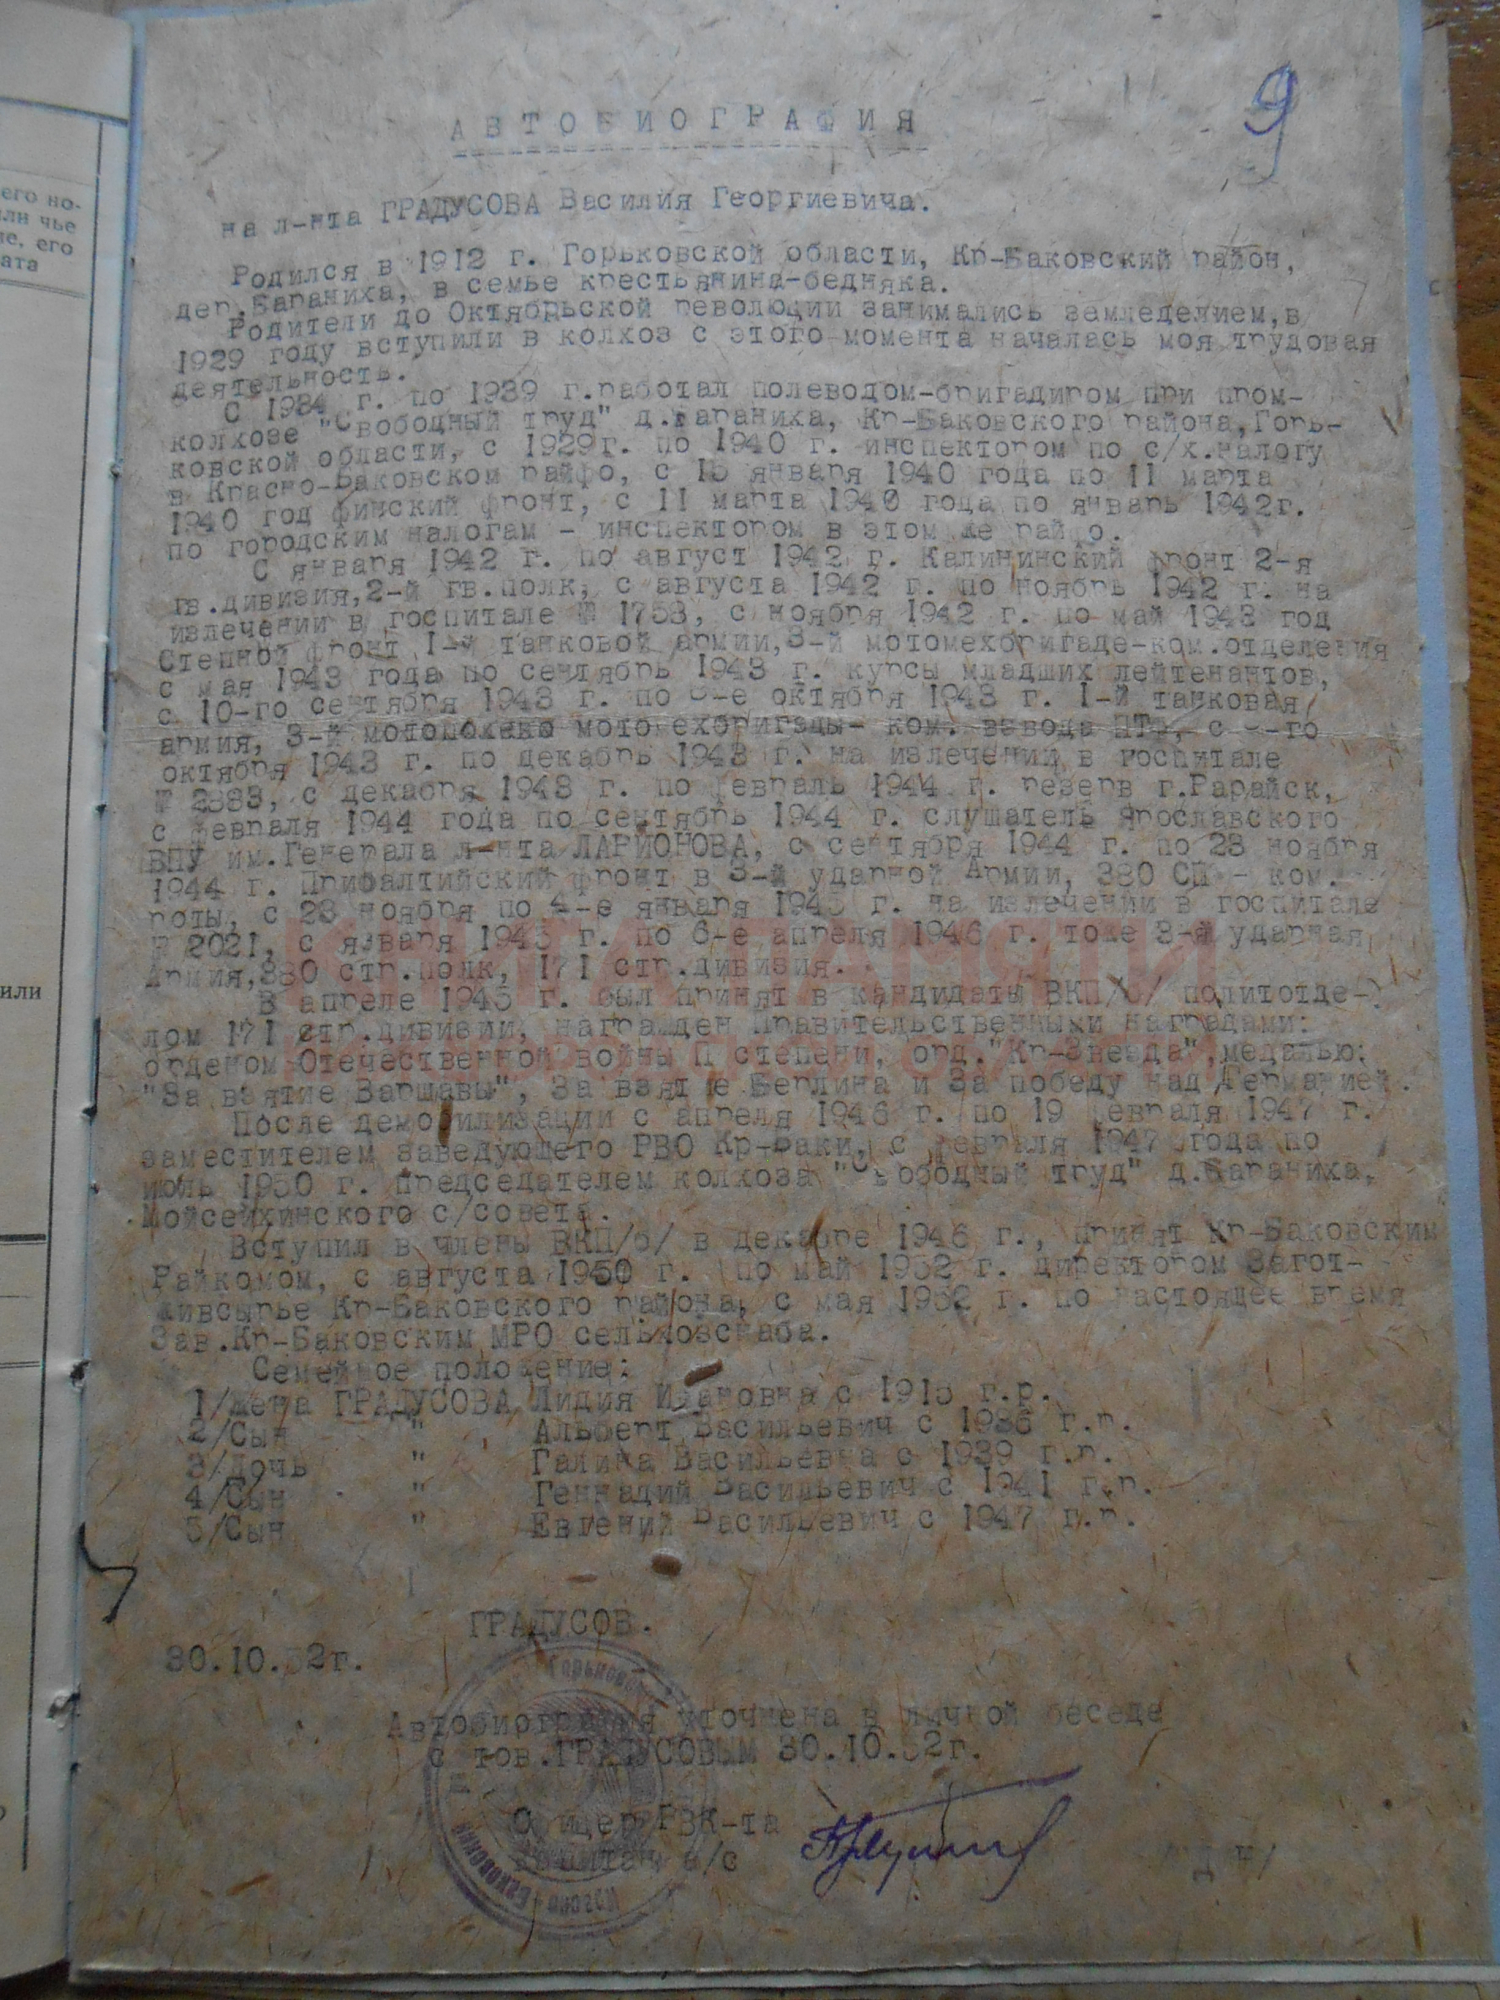 9
его но-
или чье
ие, его
ата
или
АВТОБИОГРАФИЯ
на л-нта ГРАДУСОВА Василия Георгиевича.
Родился в 1912 г. Горьковской области, Кр-Баковский район,
дер.Бараниха, в семье крестьянина-бедняка.
Родители до Октябрьской революции занимались земледелием,в
1929 году вступили в колхоз с этого момента началась моя трудовая
деятельность.
С 1934 г. по 1939 г.работал полеводом-бригадиром при пром-
колхозе "Свободный труд" д.Бараниха, Кр-Баковского района,Горь-
ковской области, с 1929г. по 1940 г. инспектором по с/х.налогу
в Красно-Баковском райфо, с 15 января 1940 года по 11 марта
1940 год финский фронт, с 11 марта 1940 года по январь 1942г.
по городским налогам - инспектором в этом же райфо.
С января 1942 г. по август 1942 г. Калининский фронт 2-я
гв.дивизия,2-й гв.полк, с августа 1942 г. по ноябрь 1942 г. на
излечении в госпитале № 1753, с ноября 1942 г. по май 1943 год
Степной фронт 1-й танковой армии,3-й мотомехбригаде-ком.отделения
с мая 1943 года по сентябрь 1943 г. курсы младших лейтенантов,
с 10-го сентября 1943 г. по -е октября 1943 г. 1-й танковая
армия, 3-й мотомехбригады- ком. взвода ПТР, с -го
октября 1943 г. по декабрь 1943 г. на излечении в госпитале
№ 2383, с декабря 1943 г. по февраль 1944 г. резерв г.Рарайск,
с февраля 1944 года по сентябрь 1944 г. слушатель Ярославского
ВПУ им.Генерала л-нта ЛАРИОНОВА, с сентября 1944 г. по 23 ноября
1944 г. Прибалтийский фронт в 3-й ударной Армии, 380 СП - ком.
роты, с 23 ноября по 4-е января 1945 г. на излечении в госпитале
№ 2021, с января 1945 г. по 6-е апреля 1946 г. тоже 3-я ударная
Армия,380 стр.полк, 171 стр.дивизия.
В апреле 1945 г. был принят в кандидаты ВКП/б/ политотде-
лом 171 стр.дивизии, награжден Правительственными наградами:
орденом Отечественной войны П степени, орд."Кр-Звезда",медалью:
"За взятие Варшавы", За взятие Берлина и За победу над Германией.
После демобилизации с апреля 1946 г. по 19 февраля 1947 г.
заместителем заведующего РВО Кр-Баки, с февраля 1947 года по
июль 1950 г. председателем колхоза "Свободный труд" д.Бараниха,
Мойсеихинского с/совета.
Вступил в члены ВКП/б/ в декабре 1946 г., принят Кр-Баковским
Райкомом, с августа 1950 г. по май 1952 г. директором Загот-
живсырье Кр-Баковского района, с мая 1952 г. по настоящее время
Зав.Кр-Баковским МРО сельхозснаба.
Семейное положение:
1/жена ГРАДУСОВА Лидия Ивановна с 1915 г.р.
2/Сын " Альберт Васильевич с 1936 г.р.
3/Дочь " Галина Васильевна с 1939 г.р.
4/Сын " Геннадий Васильевич с 1941 г.р.
5/Сын " Евгений Васильевич с 1947 г.р.
ГРАДУСОВ.
30.10.52г.
Автобиография уточнена в личной беседе
с тов.ГРАДУСОВЫМ 30.10.52г.
Офицер РВК-та
капитан а/с
КНИГА ПАМЯТИ